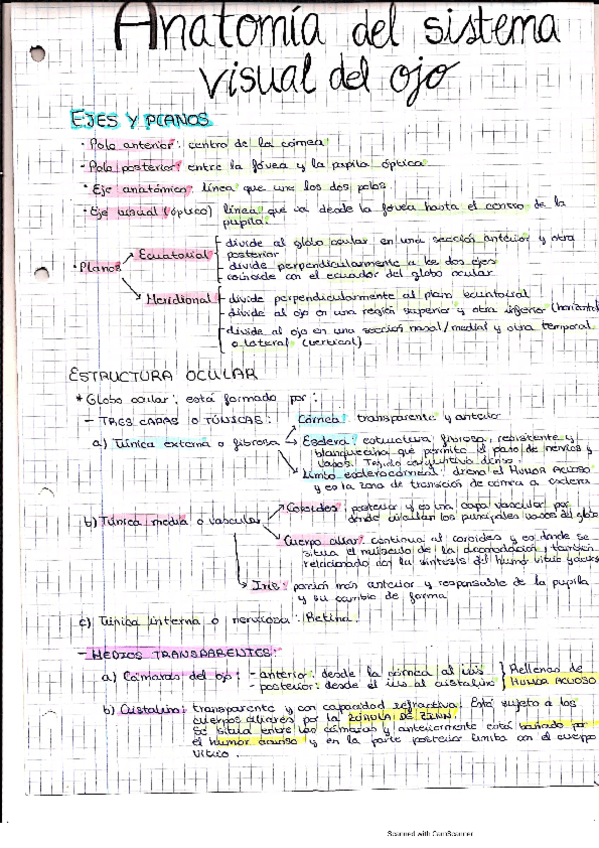 Anatomía del sistema
visual del ojo
EJES Y PLANOS
· Polo anterior: centro de la córnea
· Polo posterior: entre la fóvea y la pupila óptica
· Eje anatómico: línea que une los dos polos.
· Eje visual (óptico) línea que va desde la fóvea hasta el centro de la
pupila.
· Planos
Ecuatorial
divide al globo ocular en una sección anterior y otra
posterior
divide perpendicularmente a los dos ejes
coincide con el ecuador del globo ocular
Meridional
divide perpendicularmente al plano ecuatorial
divide al ojo en una región superior y otra inferior (horizontal)
divide al ojo en una sección nasal/medial y otra temporal
o lateral (vertical)
ESTRUCTURA OCULAR
* Globo ocular: está formado por:
- TRES CAPAS O TÚNICAS:
Córnea: transparente y anterior
a) Túnica externa o fibrosa
Esclera: estructura fibrosa, resistente y
blanquecina que permite el paso de nervios y
vasos. Tejido conjuntivo denso.
Limbo esclerocorneal: drena el HUMOR ACUOSO
y es la zona de transición de córnea a esclera
b) Túnica media o vascular
Coroides: posterior y es una capa vascular por
donde circulan los principales vasos del globo
Cuerpo ciliar: continua al coroides y es donde se
situa el músculo de la acomodación y también
relacionado con la síntesis del humor vítreo y acuoso
Iris: porción más anterior y responsable de la pupila
y su cambio de forma
c) Túnica interna o nerviosa: Retina.
- MEDIOS TRANSPARENTES:
a) Cámaras del ojo: - anterior: desde la córnea al iris
- posterior: desde el iris al cristalino
Rellenas de
HUMOR ACUOSO
b) Cristalino: transparente y con capacidad refractiva. Está sujeto a los
cuerpos ciliares por la ZÓNULA DE ZINN.
Se situa entre las cámaras y anteriormente está bañado por
el humor acuoso y en la parte posterior limita con el cuerpo
vítreo.
Scanned with CamScanner